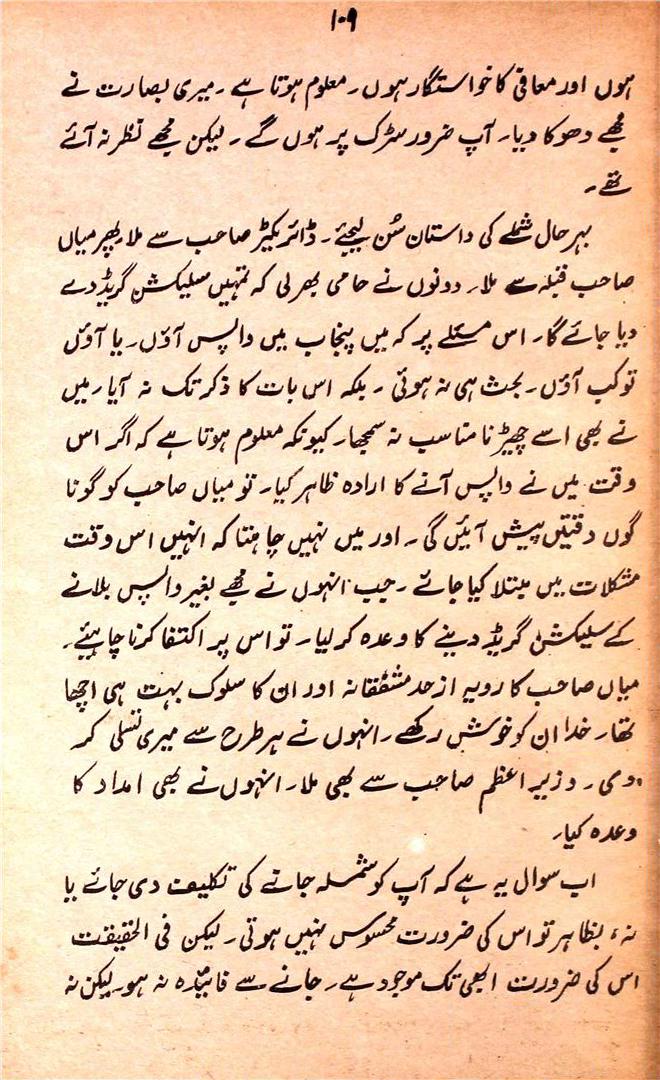 ۱۰۹
ہوں اور معافی کا خواستگار ہوں۔ معلوم ہوتا ہے۔ میری بصارت نے
مجھے دھوکا دیا۔ آپ ضرور سڑک پر ہوں گے۔ لیکن مجھے نظر نہ آئے
تھے۔
بہر حال شملے کی داستان سُن لیجئے۔ ڈائریکٹر صاحب سے ملا۔ پھر میاں
صاحب قبلہ سے ملا۔ دونوں نے حامی بھر لی کہ تمہیں سلیکشن گریڈ دے
دیا جائے گا۔ اس مسئلے پر کہ میں پنجاب میں واپس آؤں۔ یا آؤں
تو کب آؤں۔ بحث ہی نہ ہوئی۔ بلکہ اس بات کا ذکر تک نہ آیا۔ میں
نے بھی اسے چھیڑنا مناسب نہ سمجھا۔ کیونکہ معلوم ہوتا ہے کہ اگر اس
وقت میں نے واپس آنے کا ارادہ ظاہر کیا۔ تو میاں صاحب کو گونا
گوں دقتیں پیش آئیں گی۔ اور میں نہیں چاہتا کہ انہیں اس وقت
مشکلات میں مبتلا کیا جائے۔ جب انہوں نے مجھے بغیر واپس بلانے
کے سلیکشن گریڈ دینے کا وعدہ کر لیا۔ تو اس پر اکتفا کرنا چاہیئے۔
میاں صاحب کا رویہ از حد مشفقانہ اور ان کا سلوک بہت ہی اچھا
تھا۔ خدا ان کو خوش رکھے۔ انہوں نے ہر طرح سے میری تسلی کر
دی۔ وزیر اعظم صاحب سے بھی ملا۔ انہوں نے بھی امداد کا
وعدہ کیا۔
اب سوال یہ ہے کہ آپ کو شملہ جانے کی تکلیف دی جائے یا
نہ، بظاہر تو اس کی ضرورت محسوس نہیں ہوتی۔ لیکن فی الحقیقت
اس کی ضرورت ابھی تک موجود ہے۔ جانے سے فائدہ نہ ہو۔ لیکن نہ